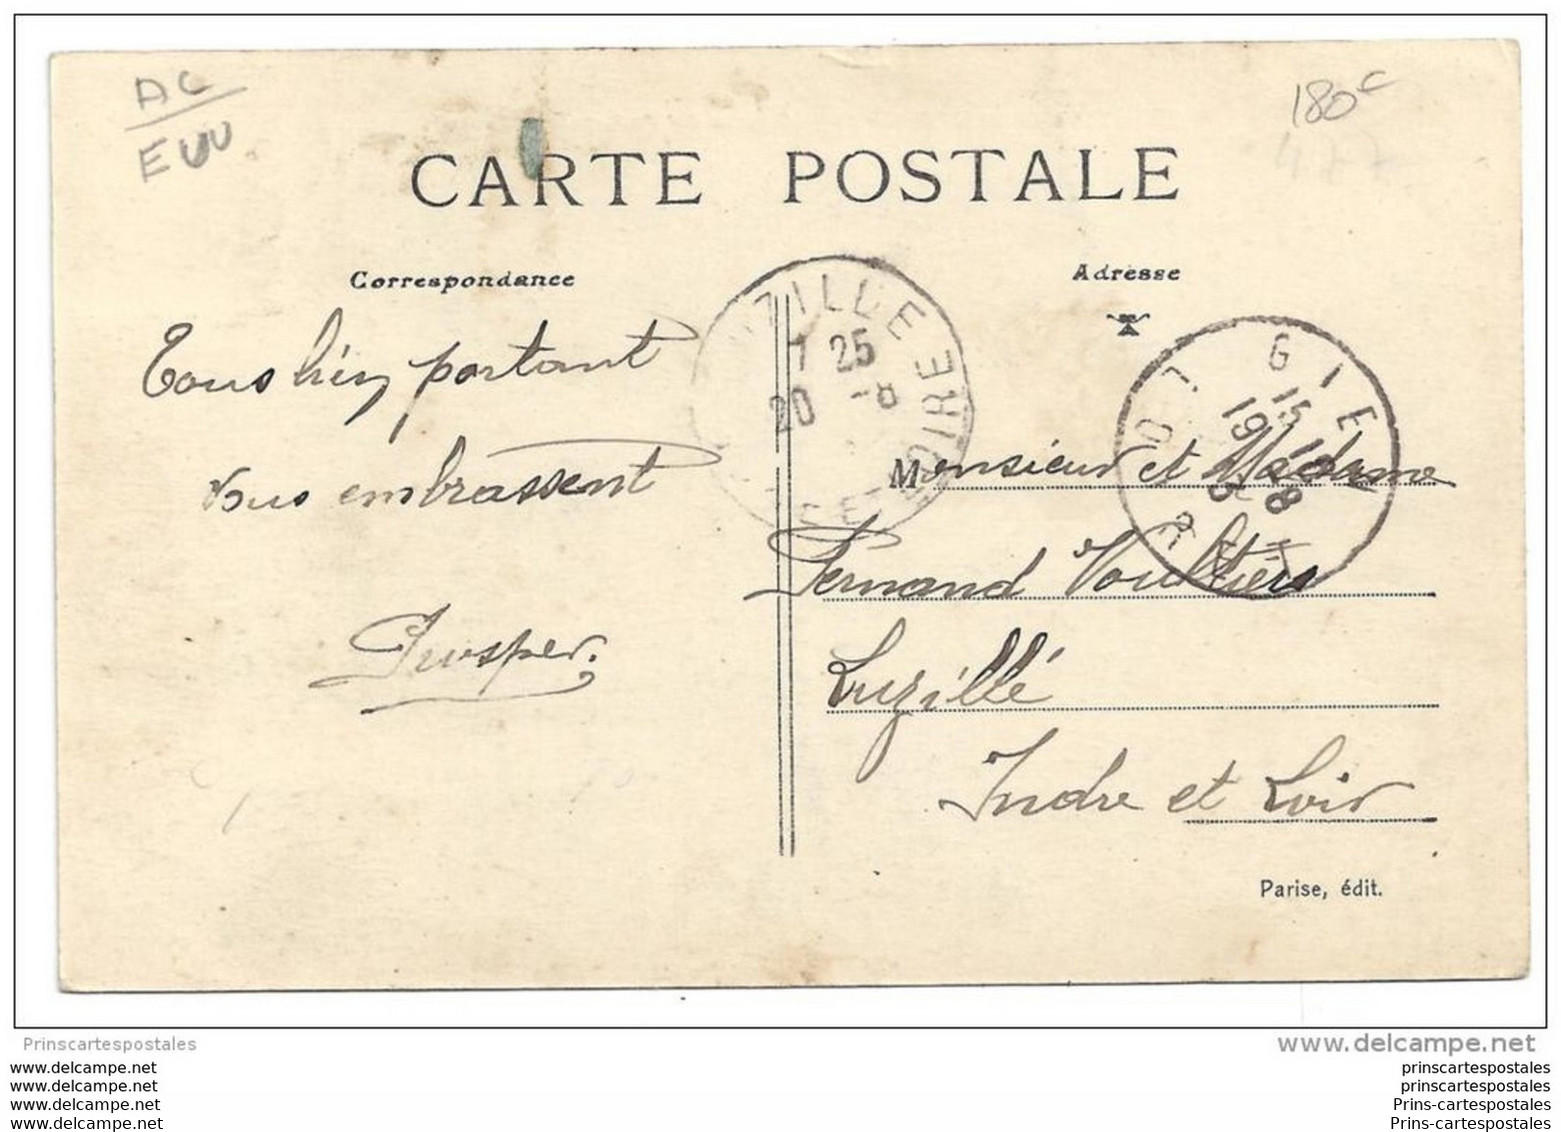 AC
EUU
180c
477
CARTE POSTALE
Correspondance
Adresse
Tous bien portant
vous embrassent
Prosper.
ZILLE
7 25
20 -8
ET LOIRE
GIE
15 10
19 8
Monsieur et Madame
Fernand Voultiers
Luzillé
Indre et Loir
Parise, édit.
Prinscartespostales
www.delcampe.net
www.delcampe.net
www.delcampe.net
www.delcampe.net
www.delcampe.net
prinscartespostales
prinscartespostales
Prins-cartespostales
Prins-cartespostales